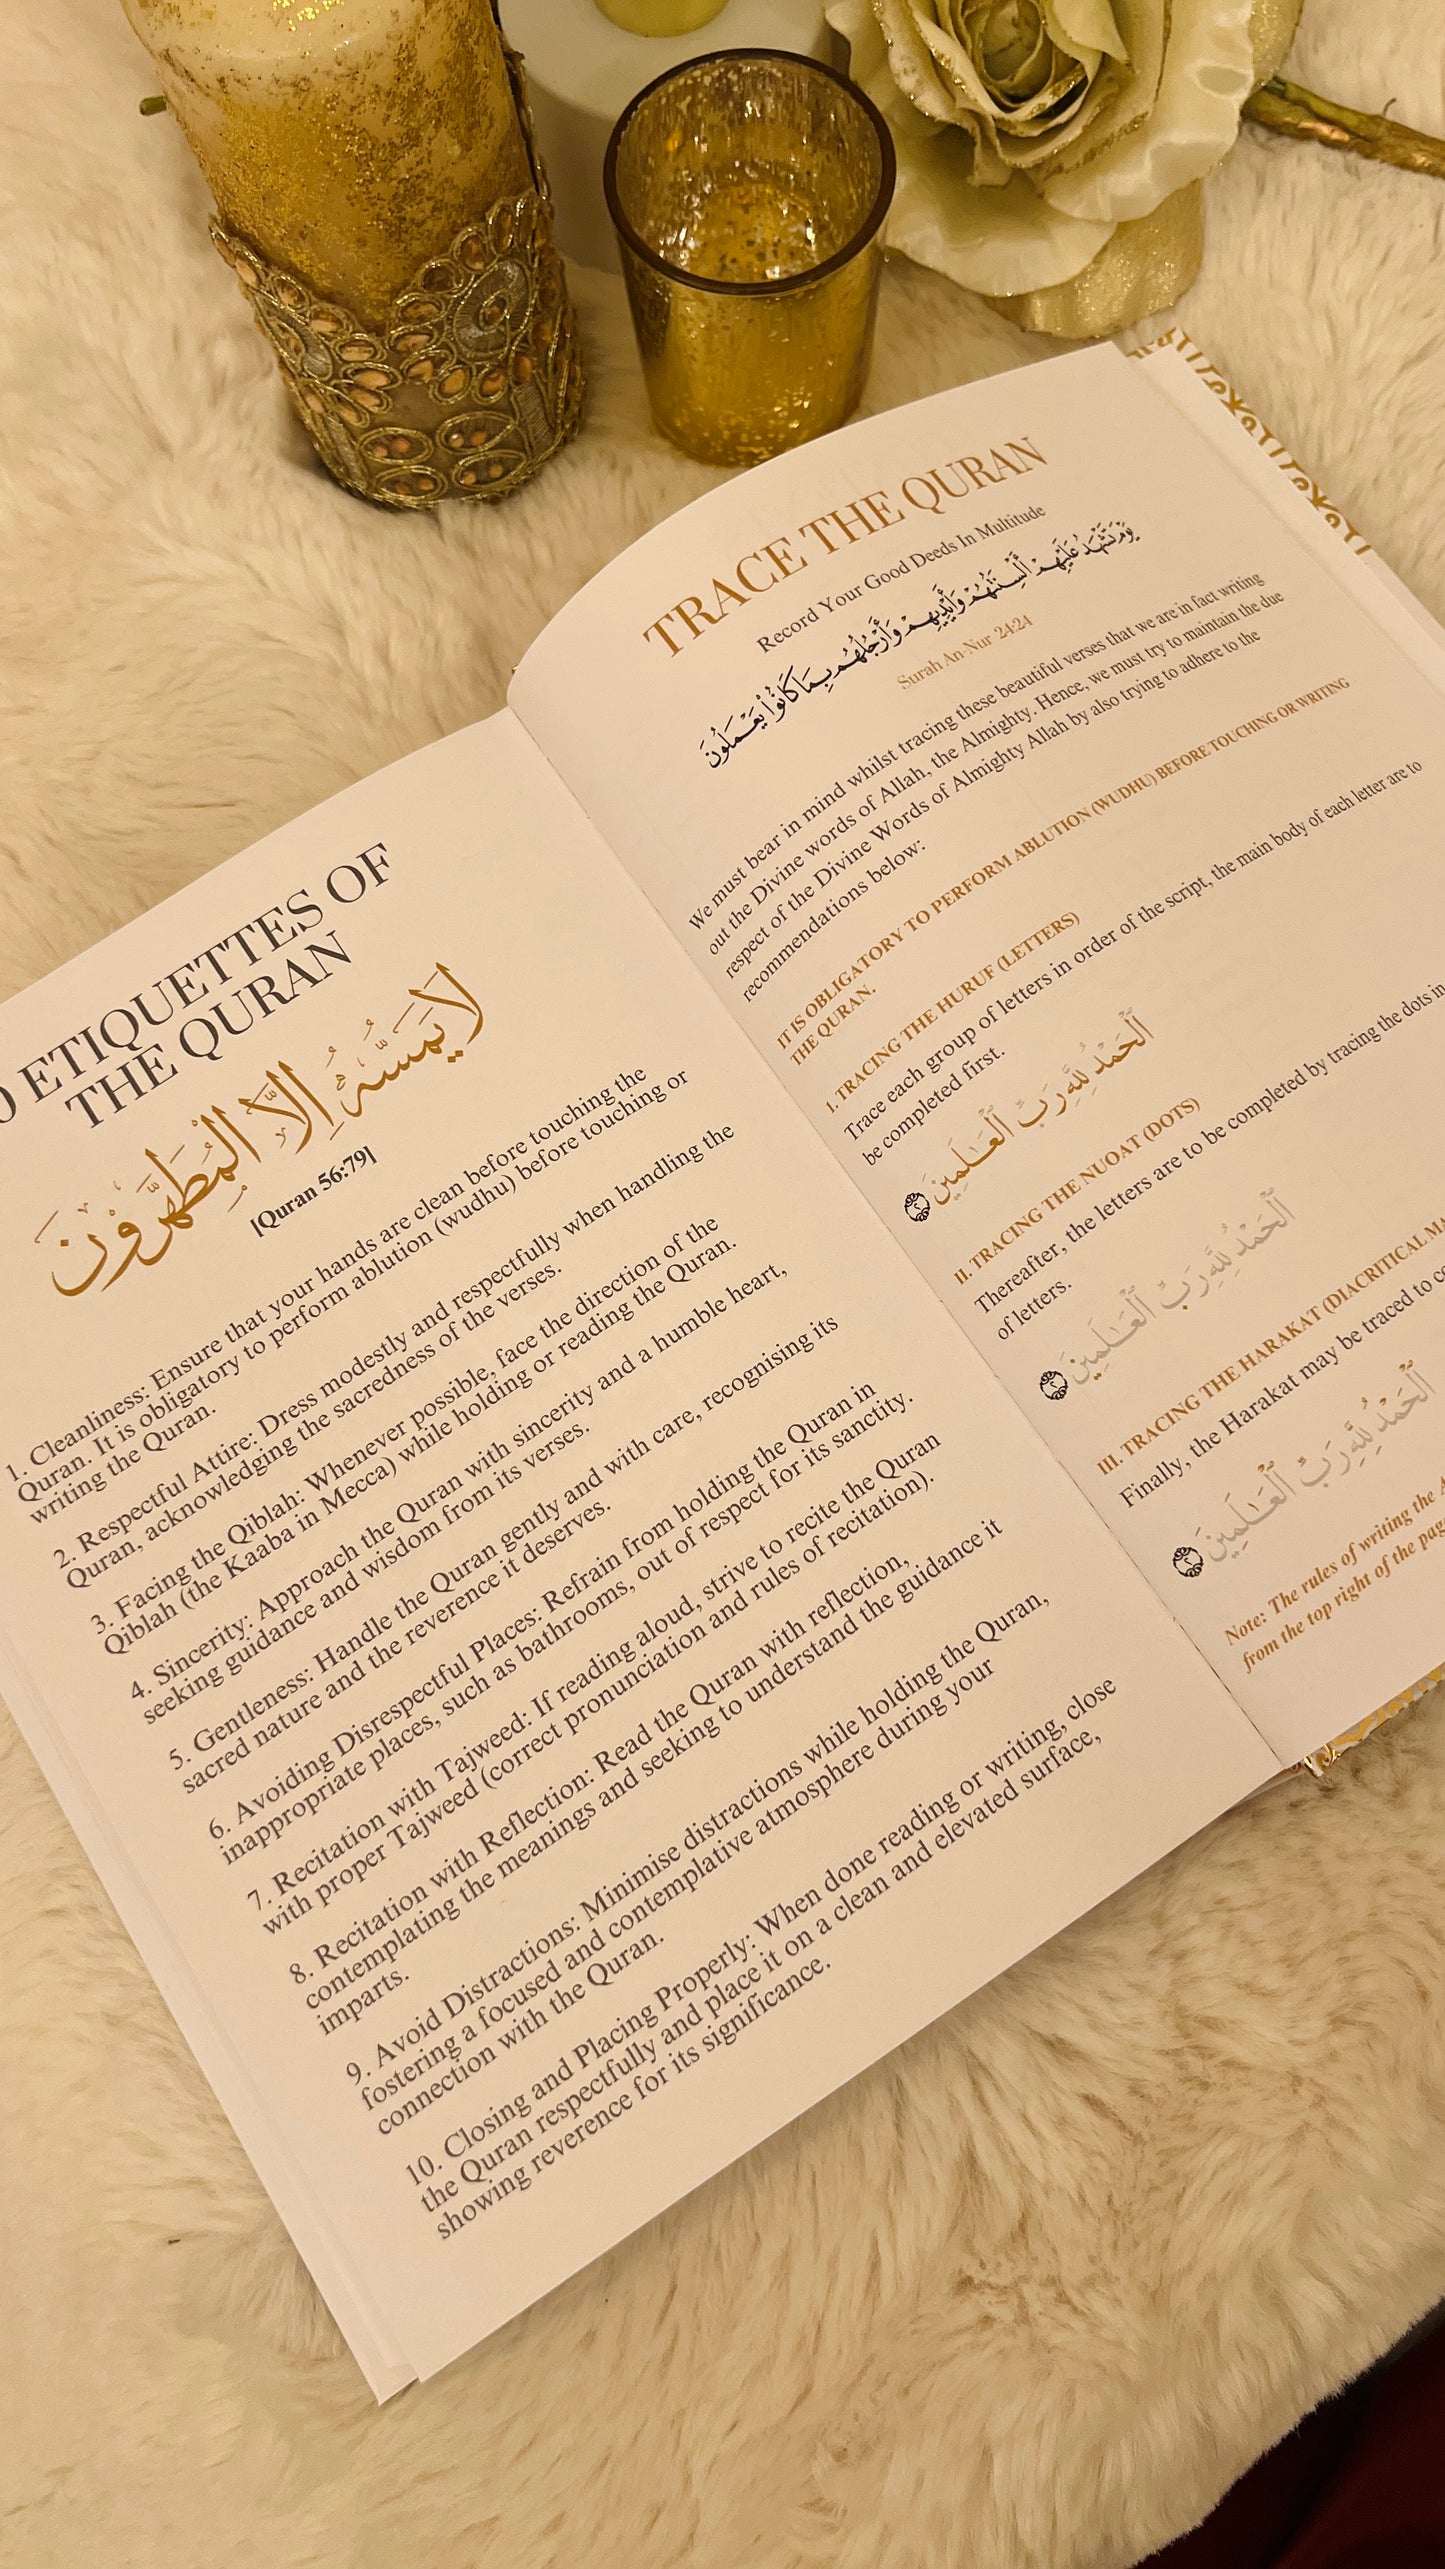 ETIQUETTES OF
THE QURAN
لَا يَمَسُّهُ إِلَّا الْمُطَهَّرُونَ
[Quran 56:79]
1. Cleanliness: Ensure that your hands are clean before touching the
Quran. It is obligatory to perform ablution (wudhu) before touching or
writing the Quran.
2. Respectful Attire: Dress modestly and respectfully when handling the
Quran, acknowledging the sacredness of the verses.
3. Facing the Qiblah: Whenever possible, face the direction of the
Qiblah (the Kaaba in Mecca) while holding or reading the Quran.
4. Sincerity: Approach the Quran with sincerity and a humble heart,
seeking guidance and wisdom from its verses.
5. Gentleness: Handle the Quran gently and with care, recognising its
sacred nature and the reverence it deserves.
6. Avoiding Disrespectful Places: Refrain from holding the Quran in
inappropriate places, such as bathrooms, out of respect for its sanctity.
7. Recitation with Tajweed: If reading aloud, strive to recite the Quran
with proper Tajweed (correct pronunciation and rules of recitation).
8. Recitation with Reflection: Read the Quran with reflection,
contemplating the meanings and seeking to understand the guidance it
imparts.
9. Avoid Distractions: Minimise distractions while holding the Quran,
fostering a focused and contemplative atmosphere during your
connection with the Quran.
10. Closing and Placing Properly: When done reading or writing, close
the Quran respectfully and place it on a clean and elevated surface,
showing reverence for its significance.
TRACE THE QURAN
Record Your Good Deeds In Multitude
يَوْمَ تَشْهَدُ عَلَيْهِمْ أَلْسِنَتُهُمْ وَأَيْدِيهِمْ وَأَرْجُلُهُم بِمَا كَانُوا يَعْمَلُونَ
Surah An-Nur 24:24
We must bear in mind whilst tracing these beautiful verses that we are in fact writing
out the Divine words of Allah, the Almighty. Hence, we must try to maintain the due
respect of the Divine Words of Almighty Allah by also trying to adhere to the
recommendations below:
IT IS OBLIGATORY TO PERFORM ABLUTION (WUDHU) BEFORE TOUCHING OR WRITING
THE QURAN.
I. TRACING THE HURUF (LETTERS)
Trace each group of letters in order of the script, the main body of each letter are to
be completed first.
ٱلْحَمْدُ لِلَّهِ رَبِّ ٱلْعَـٰلَمِينَ ٢
II. TRACING THE NUQAT (DOTS)
Thereafter, the letters are to be completed by tracing the dots in
of letters.
ٱلْحَمْدُ لِلَّهِ رَبِّ ٱلْعَـٰلَمِينَ ٢
III. TRACING THE HARAKAT (DIACRITICAL
Finally, the Harakat may be traced to
ٱلْحَمْدُ لِلَّهِ رَبِّ ٱلْعَـٰلَمِينَ ٢
Note: The rules of writing the
from the top right of the